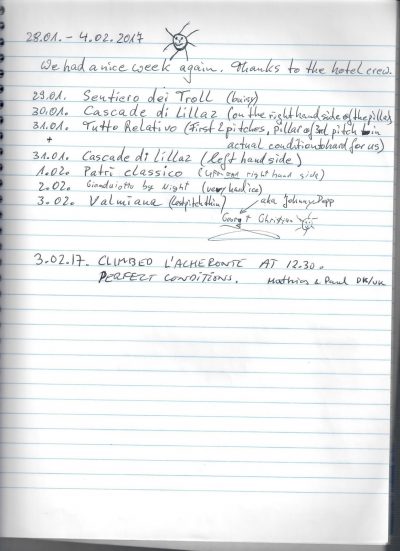 28.01. - 4.02.2017
We had a nice week again. Thanks to the hotel crew.
29.01. Sentiero dei Troll (busy)
30.01. Cascade di Lillaz (on the right hand side of the pillar)
31.01. Tutto Relativo (first 2 pitches, pillar of 3rd pitch in
+ actual condition to hard for us)
31.01. Cascade di Lillaz (left hand side)
1.02. Patri classico (upon right hand side)
2.02. Gianduiotto by Night (very hard ice)
3.02. Valmiana (last pitch thin)
aka Johnny Depp
Georg + Christian
3.02.17. CLIMBED L'ACHERONTE AT 12.30.
PERFECT CONDITIONS. Mathias & Paul DK/UK